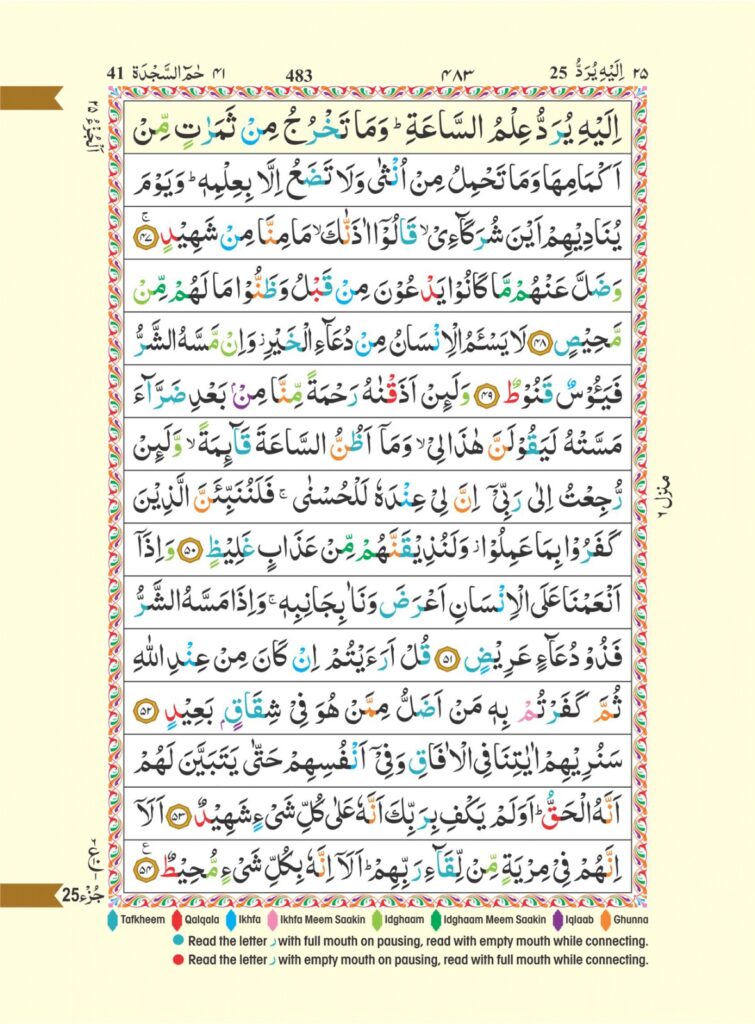 41 حٰمٓ السَّجْدَة ۴۱ 483 ۴۸۳ 25 اِلَیْهِ یُرَدُّ ۲۵
اَلْجُزْءُ ۲۵
اِلَیْهِ یُرَدُّ عِلْمُ السَّاعَةِ ؕ وَمَا تَخْرُجُ مِنْ ثَمَرٰتٍ مِّنْ
اَكْمَامِهَا وَمَا تَحْمِلُ مِنْ اُنْثٰی وَلَا تَضَعُ اِلَّا بِعِلْمِهٖ ؕ وَیَوْمَ
یُنَادِیْهِمْ اَیْنَ شُرَكَآءِیْ ۙ قَالُوْۤا اٰذَنّٰكَ ۙ مَا مِنَّا مِنْ شَهِیْدٍ ۚ ۴۷
وَضَلَّ عَنْهُمْ مَّا كَانُوْا یَدْعُوْنَ مِنْ قَبْلُ وَظَنُّوْا مَا لَهُمْ مِّنْ
مَّحِیْصٍ ۴۸ لَا یَسْـَٔمُ الْاِنْسَانُ مِنْ دُعَآءِ الْخَیْرِ ؗ وَاِنْ مَّسَّهُ الشَّرُّ
فَیَـُٔوْسٌ قَنُوْطٌ ۴۹ وَلَىِٕنْ اَذَقْنٰهُ رَحْمَةً مِّنَّا مِنْۢ بَعْدِ ضَرَّآءَ
مَسَّتْهُ لَیَقُوْلَنَّ هٰذَا لِیْ ۙ وَمَاۤ اَظُنُّ السَّاعَةَ قَآىِٕمَةً ۙ وَّلَىِٕنْ
رُّجِعْتُ اِلٰی رَبِّیْۤ اِنَّ لِیْ عِنْدَهٗ لَلْحُسْنٰی ۚ فَلَنُنَبِّئَنَّ الَّذِیْنَ
كَفَرُوْا بِمَا عَمِلُوْا ؗ وَلَنُذِیْقَنَّهُمْ مِّنْ عَذَابٍ غَلِیْظٍ ۵۰ وَاِذَاۤ
اَنْعَمْنَا عَلَی الْاِنْسَانِ اَعْرَضَ وَنَاٰ بِجَانِبِهٖ ۚ وَاِذَا مَسَّهُ الشَّرُّ
فَذُوْ دُعَآءٍ عَرِیْضٍ ۵۱ قُلْ اَرَءَیْتُمْ اِنْ كَانَ مِنْ عِنْدِ اللّٰهِ
ثُمَّ كَفَرْتُمْ بِهٖ مَنْ اَضَلُّ مِمَّنْ هُوَ فِیْ شِقَاقٍۭ بَعِیْدٍ ۵۲
سَنُرِیْهِمْ اٰیٰتِنَا فِی الْاٰفَاقِ وَفِیْۤ اَنْفُسِهِمْ حَتّٰی یَتَبَیَّنَ لَهُمْ
اَنَّهُ الْحَقُّ ؕ اَوَلَمْ یَكْفِ بِرَبِّكَ اَنَّهٗ عَلٰی كُلِّ شَیْءٍ شَهِیْدٌ ۵۳ اَلَاۤ
اِنَّهُمْ فِیْ مِرْیَةٍ مِّنْ لِّقَآءِ رَبِّهِمْ ؕ اَلَاۤ اِنَّهٗ بِكُلِّ شَیْءٍ مُّحِیْطٌ ۵۴
منزل ۶
ع
جُزْء 25
Tafkheem Qalqala Ikhfa Ikhfa Meem Saakin Idghaam Idghaam Meem Saakin Iqlaab Ghunna
Read the letter ر with full mouth on pausing, read with empty mouth while connecting.
Read the letter ر with empty mouth on pausing, read with full mouth while connecting.